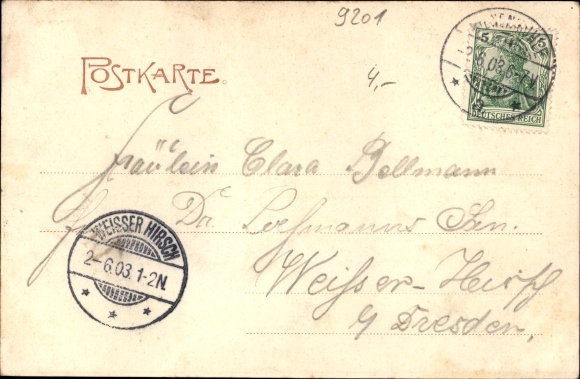 9201
4,-
POSTKARTE
6.03.6-7N.
DEUTSCHES REICH
Fräulein Clara Bellmann
Dr. Lahmanns San.
WEISSER HIRSCH
2-6.03.1-2N.
Weisser-Hirsch
b/ Dresden,